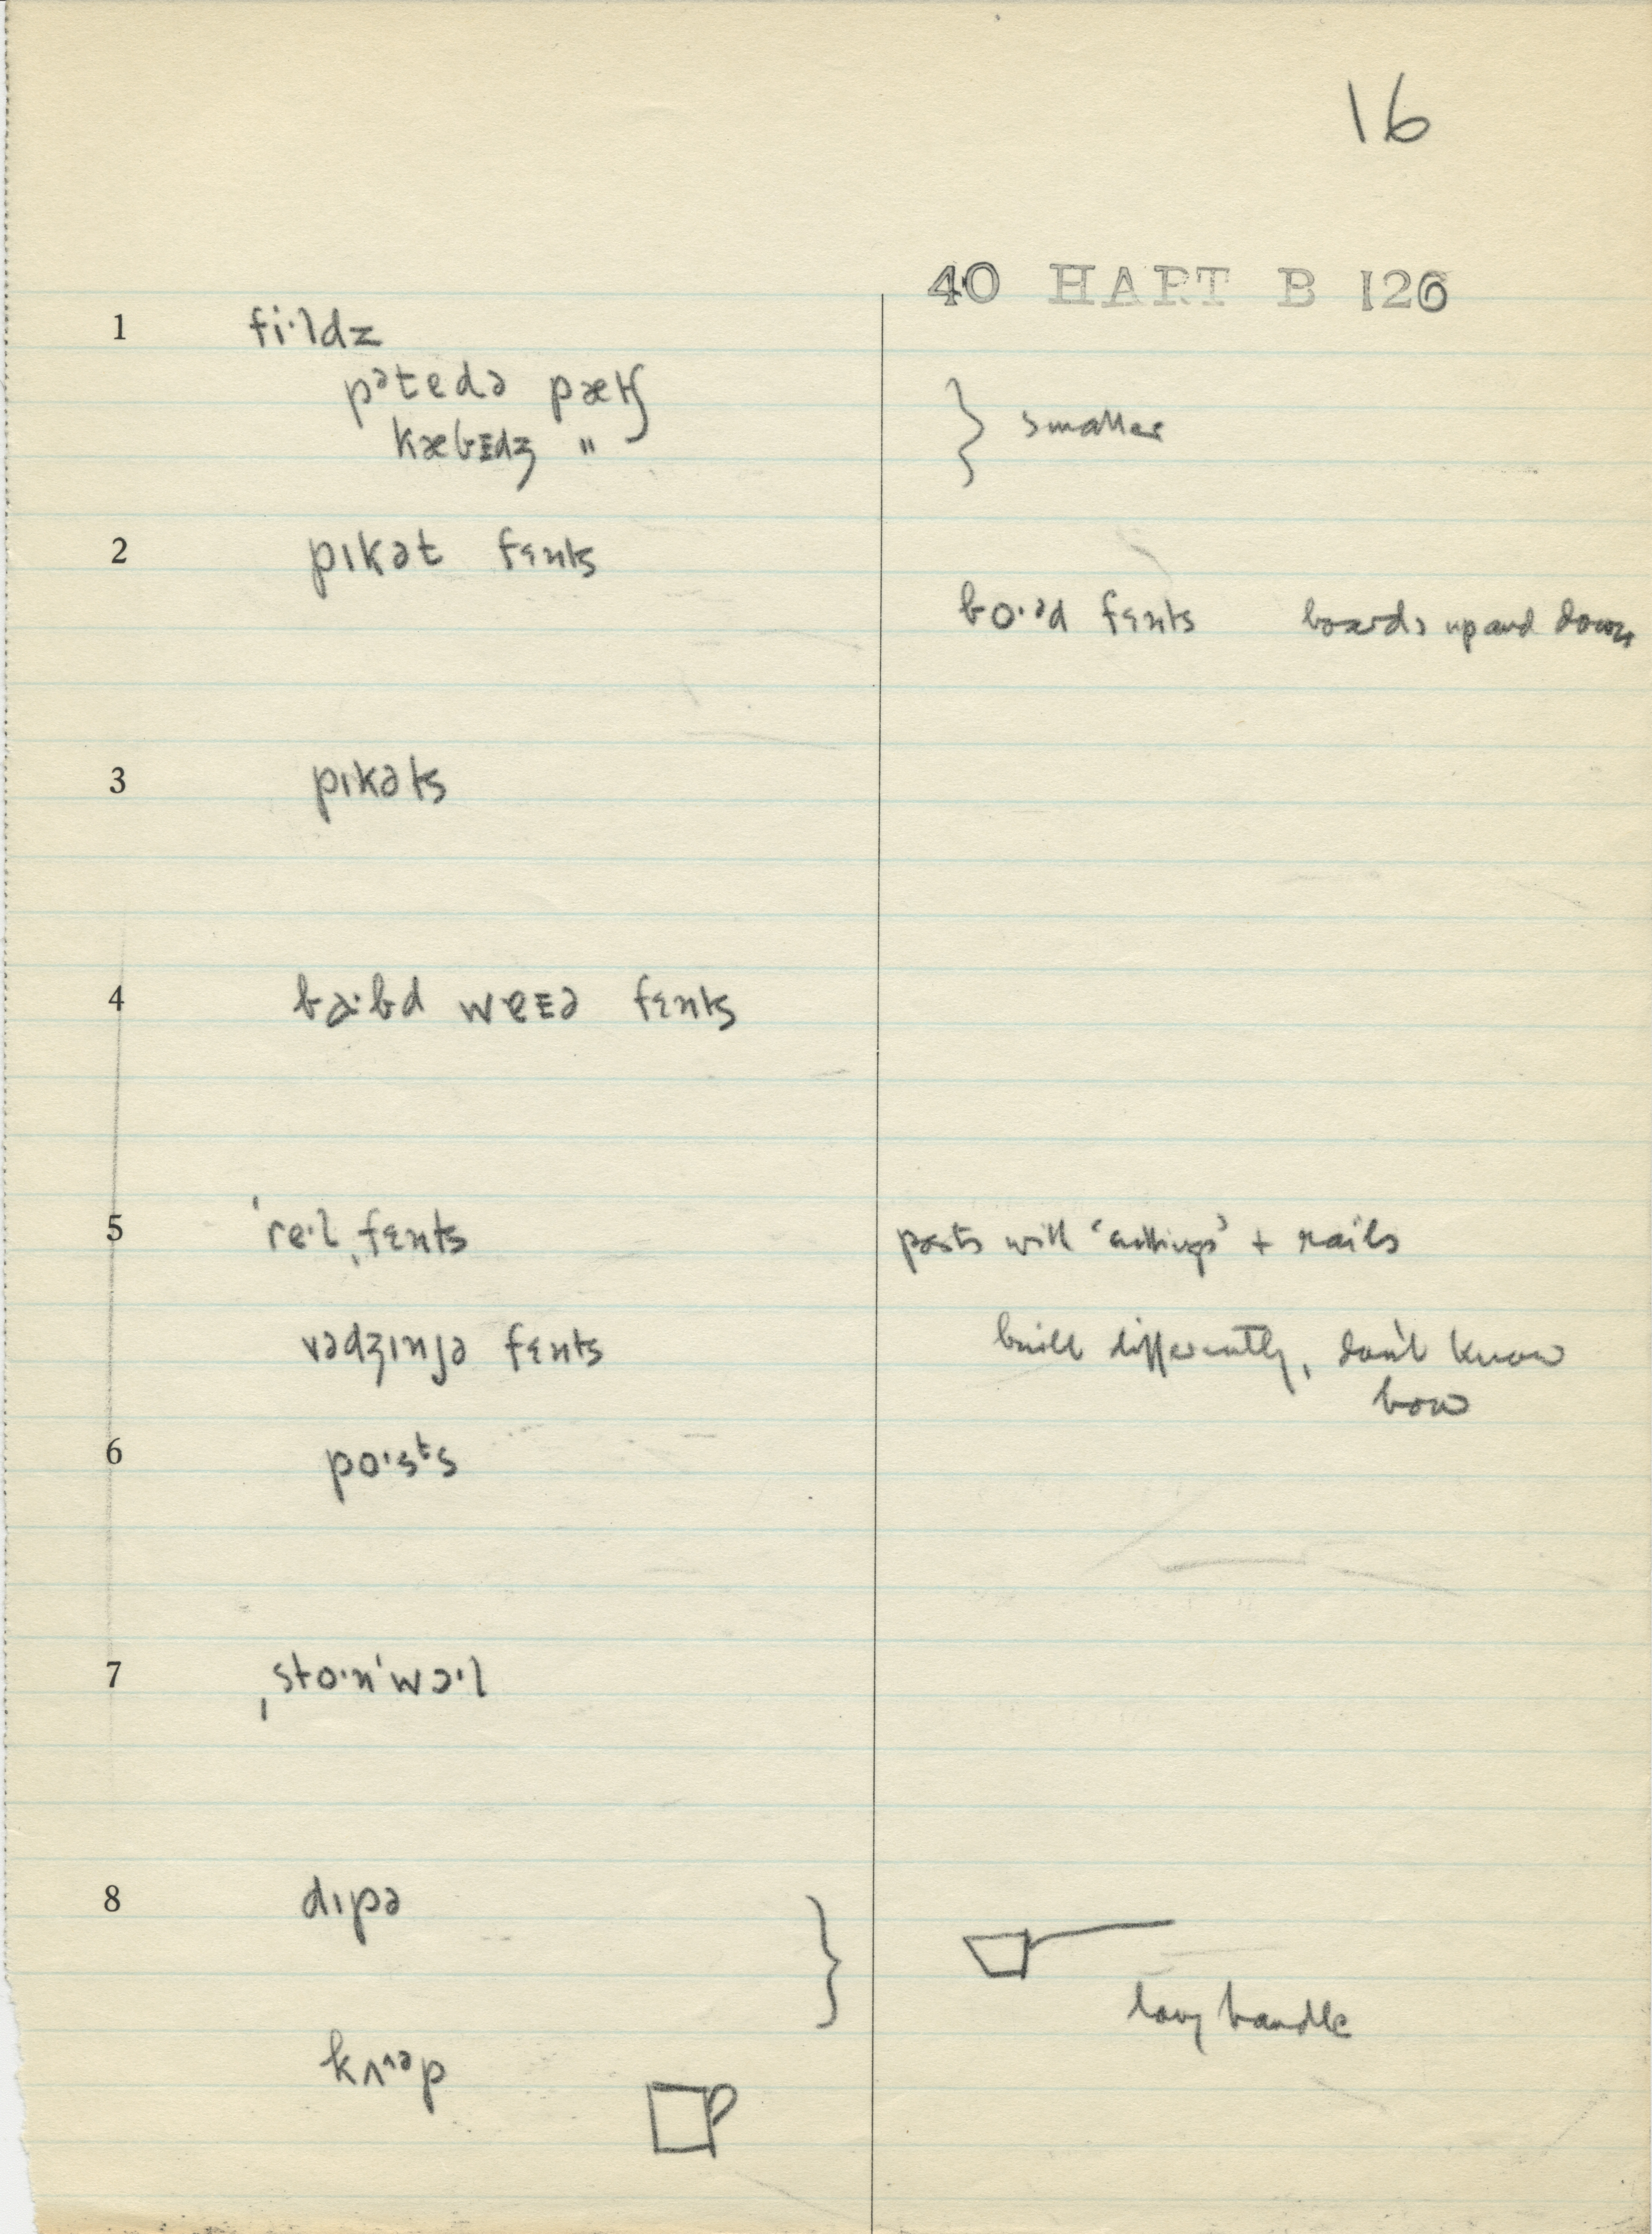 16
40 HART B 126
1 fi·ldz
pətedə pætʃ
kæbᴇdʒ "
} smaller
2 pɪkət fɛnts
bo·əd fɛnts boards up and down
3 pɪkəts
4 ba·bd weᴇə fɛnts
5 ˈre·lˌfɛnts posts with + rails
vədʒɪnjə fɛnts built differently, don't know
how
6 po·sᵗs
7 ˌsto·nˈwɔ·l
8 dɪpə }
long handle